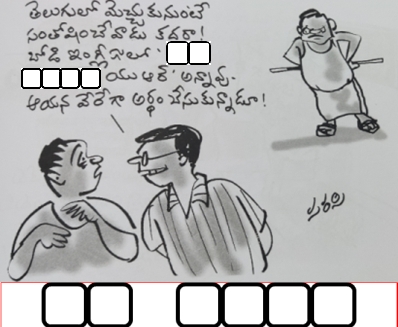 తెలుగులో మెచ్చుకునుంటే
సంతోషించేవాడు కదరా!
బోడి ఇంగ్లీషులో '
యు ఆర్' అన్నావు.
ఆయన వేరేగా అర్థం చేసుకున్నాడూ!